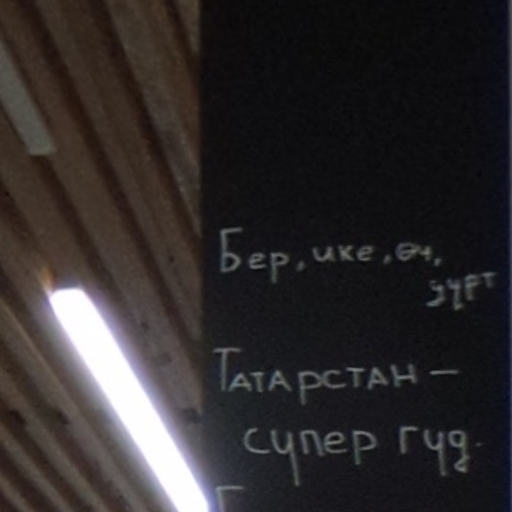 Бер, ике, өч,
дүрт
Татарстан –
супер гуд.